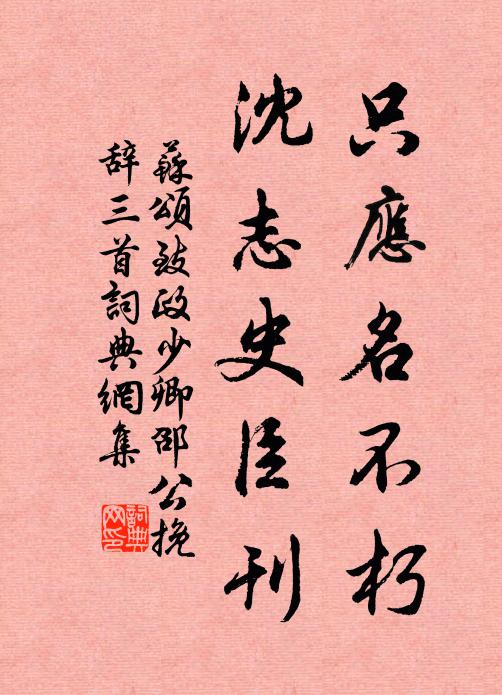 只應名不朽
沈志史臣刊
蘇頌致政少卿邵公挽
辞三首詞典網集
詞典网印